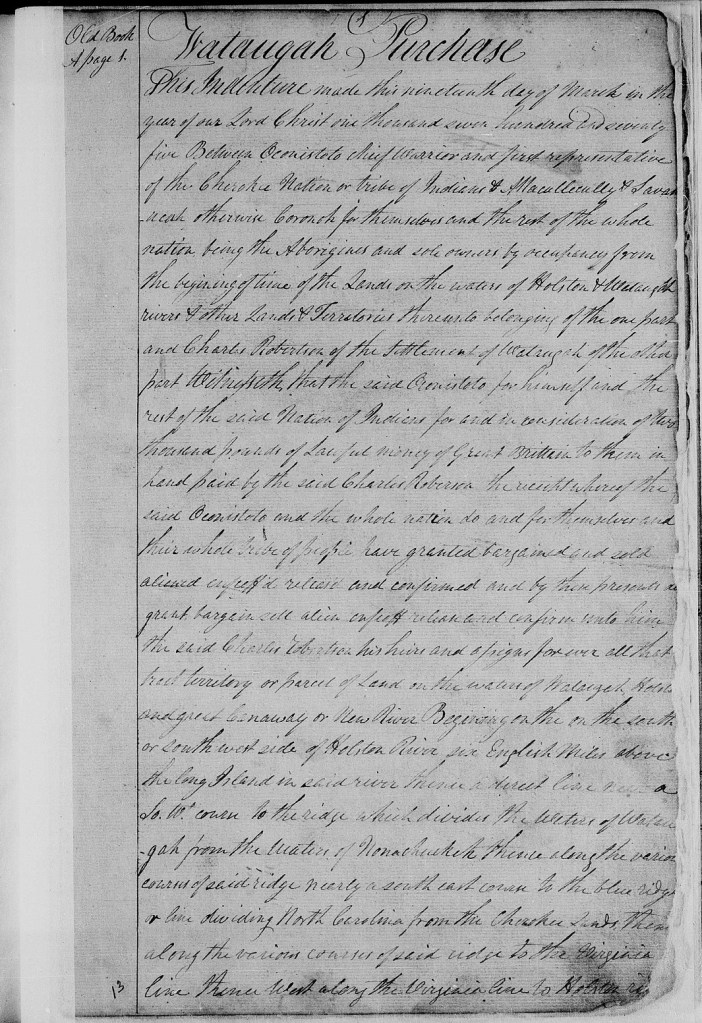 Old Book
A page 1.
Wataugah Purchase
This Indenture made this nineteenth day of March in the
year of our Lord Christ one thousand seven hundred and seventy
five Between Oconistoto chief Warrior and first representative
of the Cherokee Nation or tribe of Indians & Attacullecully & Savan
-ucah otherwise Coronoh for themselves and the rest of the whole
nation being the Aborigines and sole owners by occupancy from
the begining of time of the Lands on the waters of Holston & Wataugah
rivers & other Lands & Territories thereunto belonging of the one part
and Charles Robertson of the Settlement of Wataugah of the other
part Witnesseth, that the said Oconistoto for himself and the
rest of the said Nation of Indians for and in consideration of two
thousand pounds of Lawful money of Great Brittain to them in
hand paid by the said Charles Roberson the receipt whereof the
said Oconistoto and the whole nation do and for themselves and
their whole tribe of people have granted bargained and sold
aliened enfeoff'd releasd and confirmed and by these presents do
grant bargain sell alien enfeoff release and confirm unto him
the said Charles Robertson his heirs and assigns for ever all that
tract territory or parcel of Land on the waters of Wataugah, Holston
and great Canaway or New River Begining on the on the south
or south west side of Holston River six English Miles above
the long Island in said river thence a direct line near a
So. Wt. course to the ridge which divides the Waters of Watau
-gah from the waters of Nonachuckeh thence along the various
courses of said ridge nearly a south east course to the blue ridge
or line dividing North Carolina from the Cherokee Lands, thence
along the various courses of said ridge to the Virginia
line thence West along the Virginia line to Holston
13